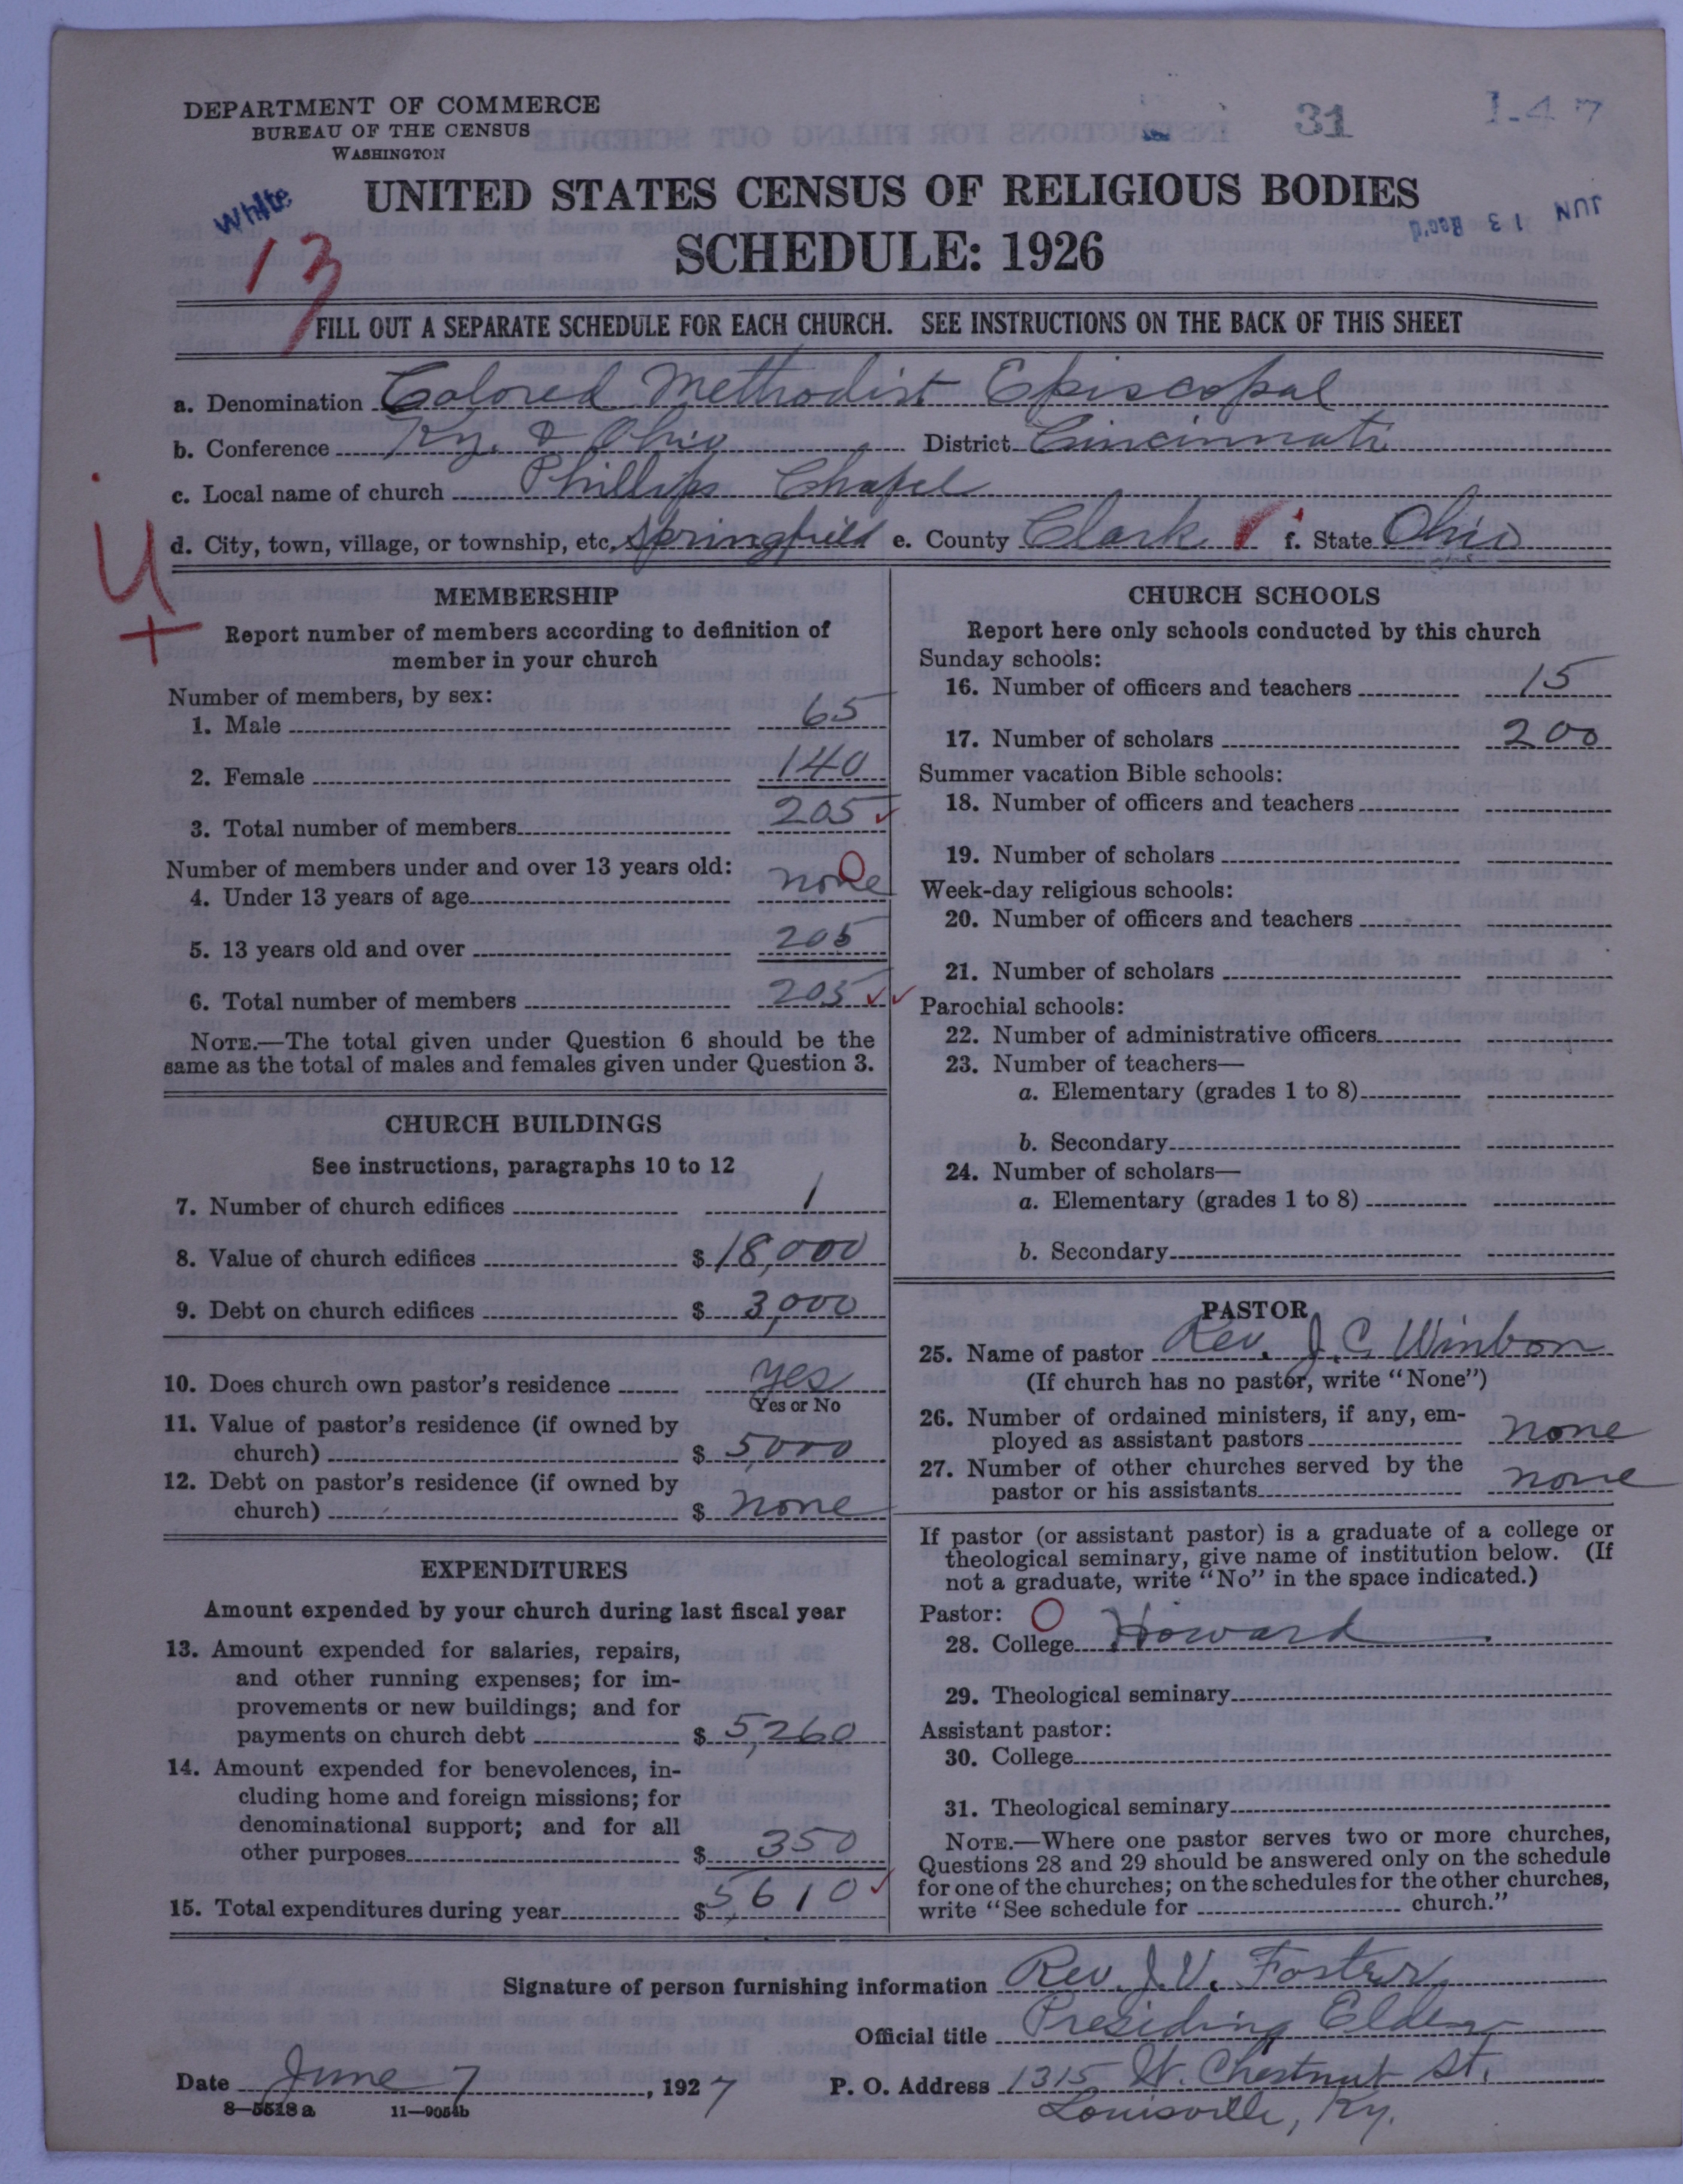 DEPARTMENT OF COMMERCE
BUREAU OF THE CENSUS
WASHINGTON
31
1-47
White
UNITED STATES CENSUS OF RELIGIOUS BODIES
JUN 13 Rec'd
13
SCHEDULE: 1926
FILL OUT A SEPARATE SCHEDULE FOR EACH CHURCH. SEE INSTRUCTIONS ON THE BACK OF THIS SHEET
a. Denomination Colored Methodist Episcopal
b. Conference Ky. & Ohio District Cincinnati
c. Local name of church Phillips Chapel
d. City, town, village, or township, etc. Springfield e. County Clark f. State Ohio
MEMBERSHIP
Report number of members according to definition of
member in your church
Number of members, by sex:
1. Male 65
2. Female 140
3. Total number of members 205
Number of members under and over 13 years old:
4. Under 13 years of age none 0
5. 13 years old and over 205
6. Total number of members 205
NOTE.—The total given under Question 6 should be the
same as the total of males and females given under Question 3.
CHURCH BUILDINGS
See instructions, paragraphs 10 to 12
7. Number of church edifices 1
8. Value of church edifices $ 18,000
9. Debt on church edifices $ 3,000
10. Does church own pastor's residence yes
Yes or No
11. Value of pastor's residence (if owned by
church) $ 5,000
12. Debt on pastor's residence (if owned by
church) $ none
EXPENDITURES
Amount expended by your church during last fiscal year
13. Amount expended for salaries, repairs,
and other running expenses; for im-
provements or new buildings; and for
payments on church debt $ 5,260
14. Amount expended for benevolences, in-
cluding home and foreign missions; for
denominational support; and for all
other purposes $ 350
15. Total expenditures during year $ 5,610
CHURCH SCHOOLS
Report here only schools conducted by this church
Sunday schools:
16. Number of officers and teachers 15
17. Number of scholars 200
Summer vacation Bible schools:
18. Number of officers and teachers
19. Number of scholars
Week-day religious schools:
20. Number of officers and teachers
21. Number of scholars
Parochial schools:
22. Number of administrative officers
23. Number of teachers—
a. Elementary (grades 1 to 8)
b. Secondary
24. Number of scholars—
a. Elementary (grades 1 to 8)
b. Secondary
PASTOR
25. Name of pastor Rev. J. C. Winbon
(If church has no pastor, write "None")
26. Number of ordained ministers, if any, em-
ployed as assistant pastors none
27. Number of other churches served by the
pastor or his assistants none
If pastor (or assistant pastor) is a graduate of a college or
theological seminary, give name of institution below. (If
not a graduate, write "No" in the space indicated.)
Pastor: O
28. College Howard
29. Theological seminary
Assistant pastor:
30. College
31. Theological seminary
NOTE.—Where one pastor serves two or more churches,
Questions 28 and 29 should be answered only on the schedule
for one of the churches; on the schedules for the other churches,
write "See schedule for church."
Signature of person furnishing information Rev. J. V. Foster
Official title Presiding Elder
Date June 7, 1927 P. O. Address 1315 W. Chestnut St.
Louisville, Ky.
8—5518a 11—9054b